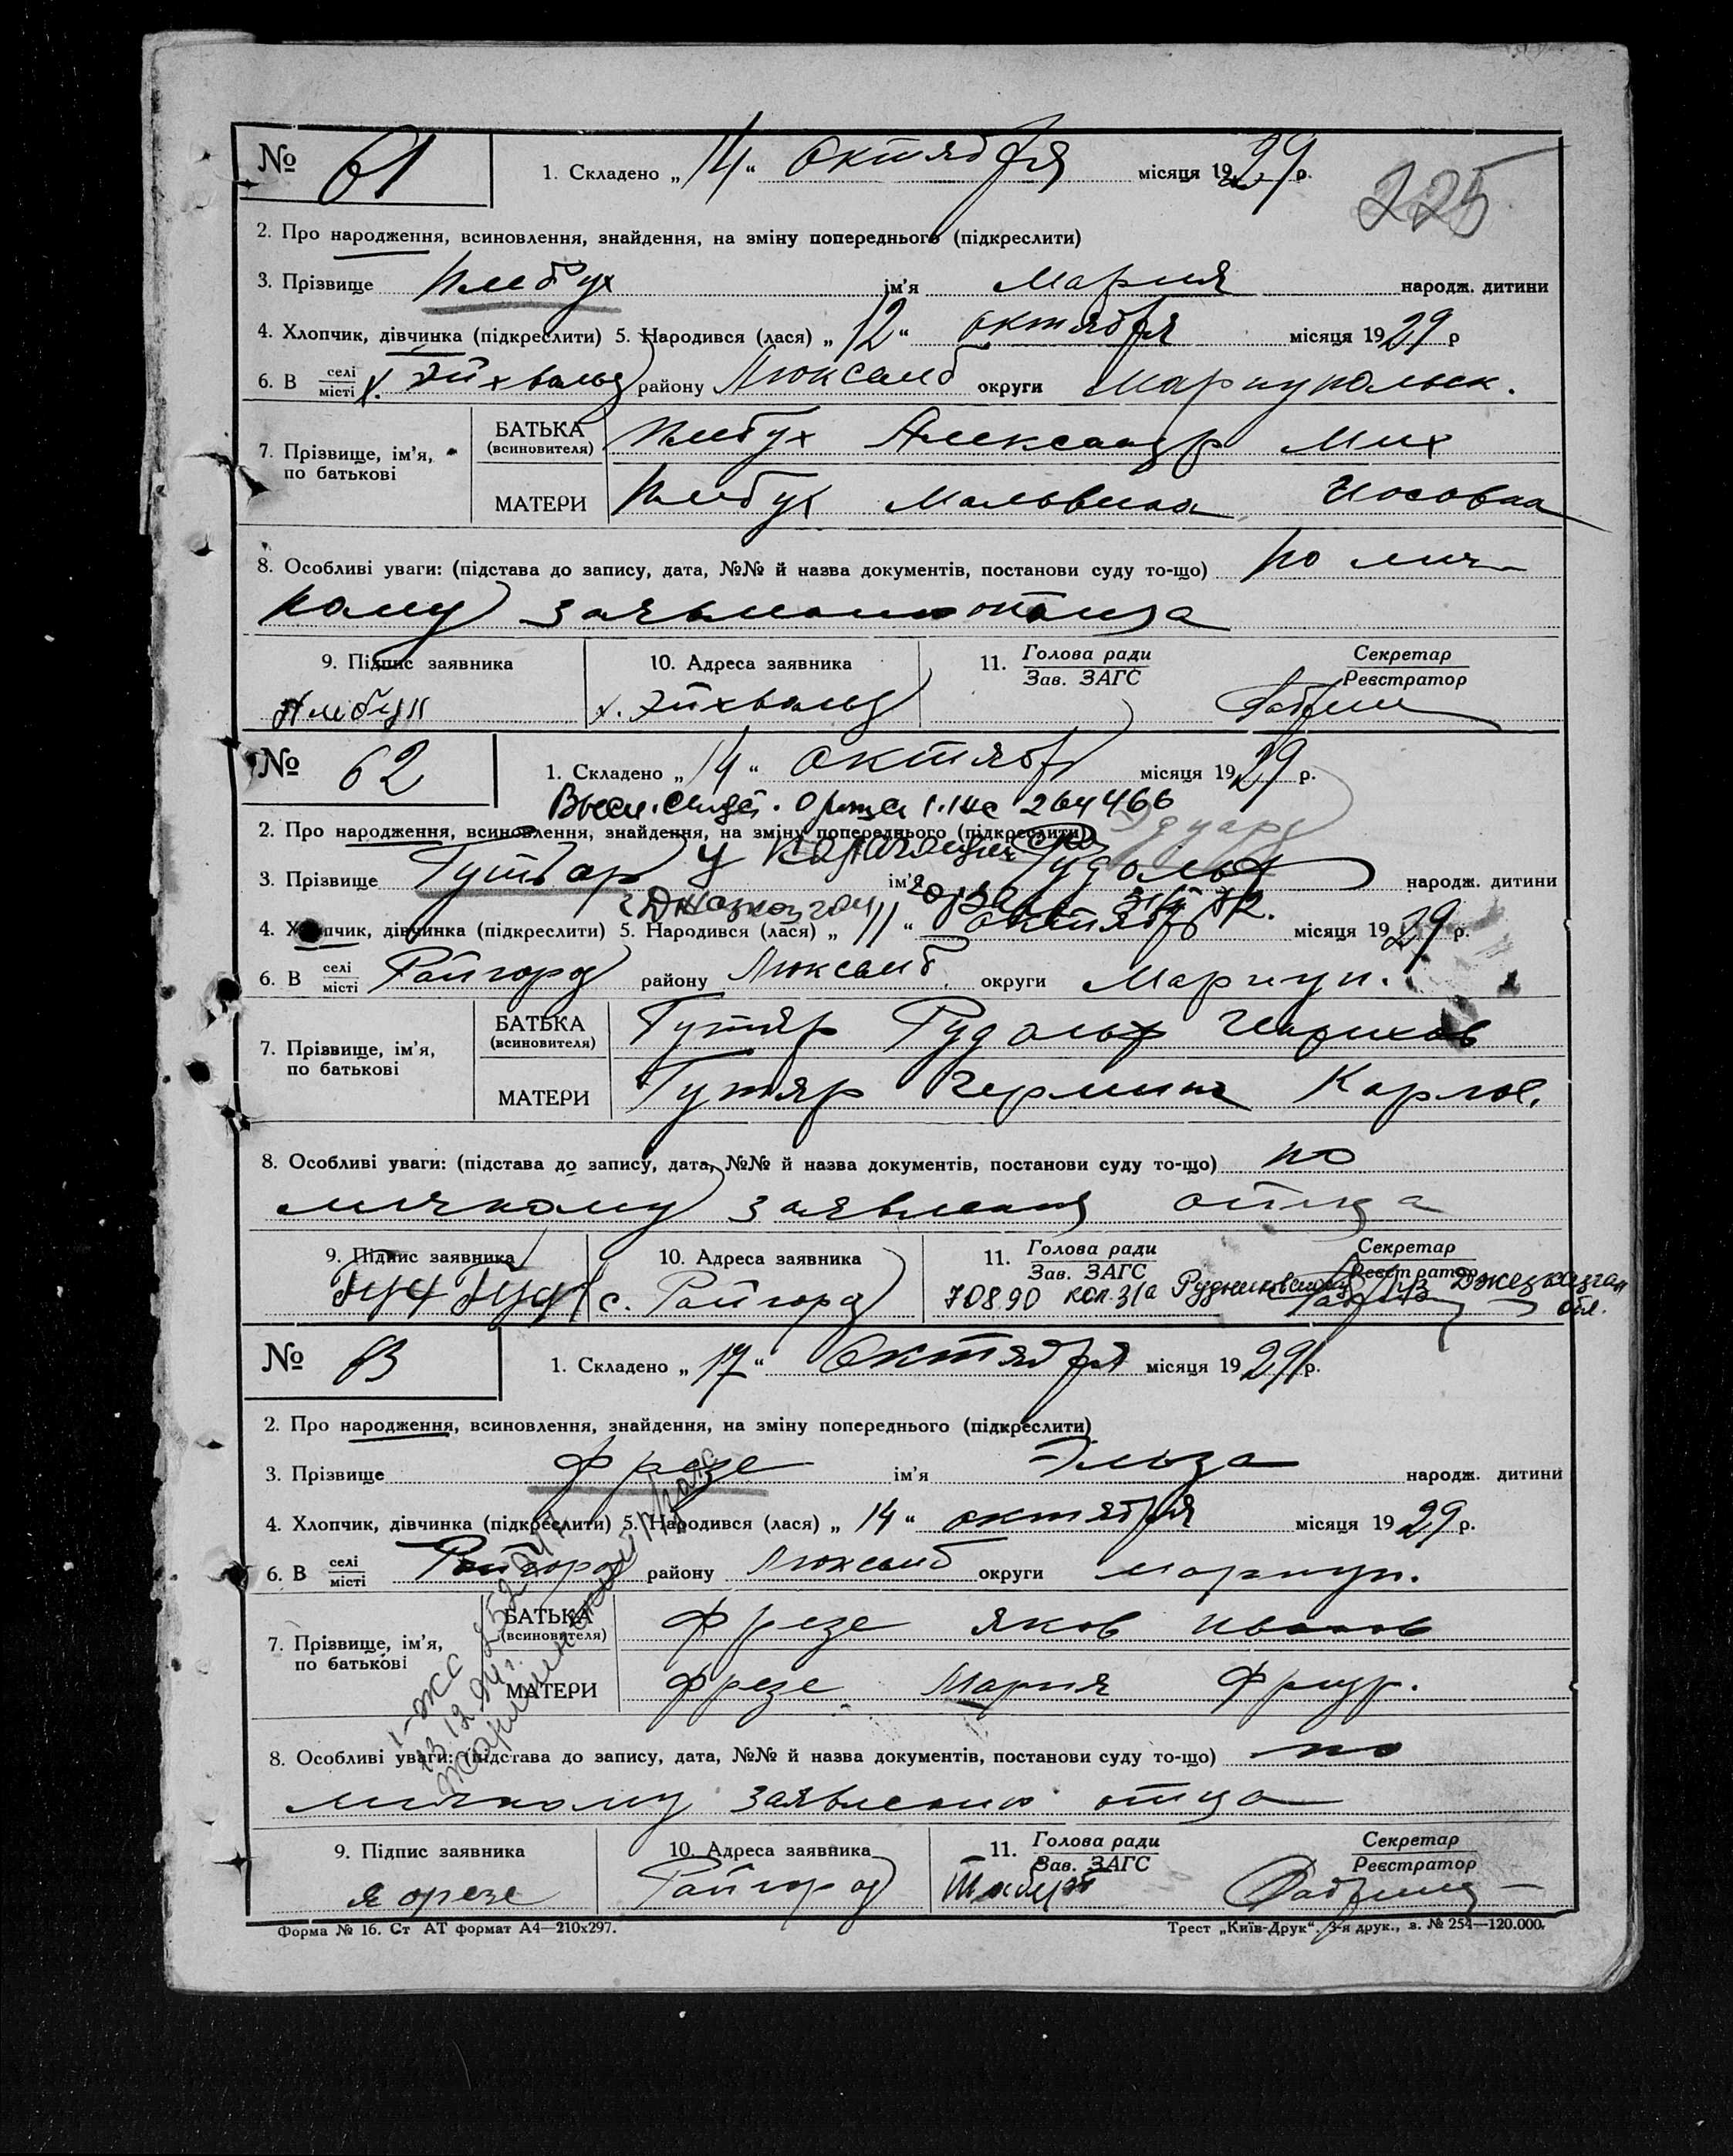 № 61
1. Складено „14“ октября місяця 1929 р.
225
2. Про народження, всиновлення, знайдення, на зміну попереднього (підкреслити)
3. Прізвище Клебух ім'я Мария народж. дитини
4. Хлопчик, дівчинка (підкреслити) 5. Народився (лася) „12“ октября місяця 1929 р
6. В селі місті х. Эйхвальд району Люксемб округи Мариупольск.
7. Прізвище, ім'я, по батькові
БАТЬКА (всиновителя) Клебух Александр Мих
МАТЕРИ Клебух Мальвина
8. Особливі уваги: (підстава до запису, дата, №№ й назва документів, постанови суду то-що) По лич
ному заявлению отца
9. Підпис заявника 10. Адреса заявника 11. Голова ради Зав. ЗАГС Секретар Реєстратор
х. Эйхвальд
№ 62
1. Складено „14“ октябр місяця 1929 р.
264466
2. Про народження, всиновлення, знайдення, на зміну попереднього (підкреслити) Эдуард
3. Прізвище Гутяр ім'я Рудольф народж. дитини
г Джезказган
4. Хлопчик, дівчинка (підкреслити) 5. Народився (лася) „11“ октябр місяця 1929 р.
6. В селі місті Райгород району Люксемб. округи Мариуп.
7. Прізвище, ім'я, по батькові
БАТЬКА (всиновителя) Гутяр Рудольф
МАТЕРИ Гутяр Гермина Карлов.
8. Особливі уваги: (підстава до запису, дата, №№ й назва документів, постанови суду то-що) по
личному заявления отца
9. Підпис заявника 10. Адреса заявника 11. Голова ради Зав. ЗАГС Секретар Реєстратор
Гут Руд с. Райгород 70890 Джезказган обл.
№ 63
1. Складено „17“ Октября місяця 1929 р.
2. Про народження, всиновлення, знайдення, на зміну попереднього (підкреслити)
3. Прізвище Фрезе ім'я Эльза народж. дитини
4. Хлопчик, дівчинка (підкреслити) 5. Народився (лася) „14“ октября місяця 1929 р.
6. В селі місті Райгород району Люксемб округи Мариуп.
7. Прізвище, ім'я, по батькові
БАТЬКА (всиновителя) Фрезе Яков Иванов
МАТЕРИ Фрезе Мария Фридр.
8. Особливі уваги: (підстава до запису, дата, №№ й назва документів, постанови суду то-що) по
личному заявлению отца
9. Підпис заявника 10. Адреса заявника 11. Голова ради Зав. ЗАГС Секретар Реєстратор
Я Фрезе Райгород
Форма № 16. Ст АТ формат А4—210х297. Трест „Київ-Друк“. 3-я друк., з. № 254—120.000.